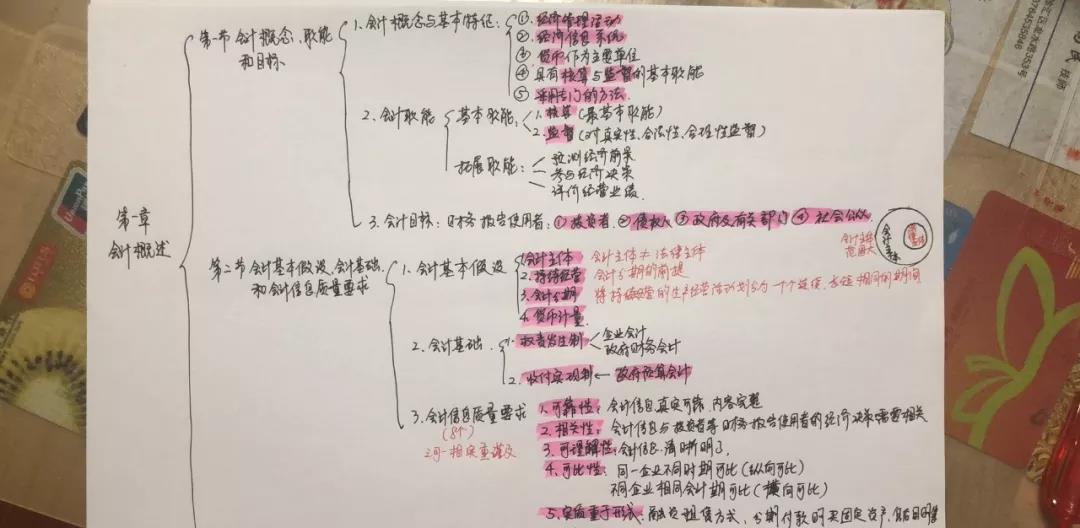 第一章
会计概述
第一节 会计概念、职能
和目标
1. 会计概念与基本特征:
①. 经济管理活动
②. 经济信息系统
③ 货币作为主要单位
④ 具有核算与监督的基本职能
⑤ 采用专门的方法.
2. 会计职能
基本职能:
1. 核算(最基本职能)
2. 监督(对真实性、合法性、合理性监督)
拓展职能:
预测经济前景
参与经济决策
评价经营业绩
3. 会计目标: 财务报告使用者: ① 投资者 ② 债权人 ③ 政府及有关部门 ④ 社会公众
会计主体
范围大
会计主体
法律主体
第二节 会计基本假设、会计基础、
和会计信息质量要求
1. 会计基本假设
1. 会计主体 会计主体≠法律主体
2. 持续经营 会计分期的前提
3. 会计分期 将持续经营的生产经营活动划分为一个个连续、长短相同的期间
4. 货币计量
2. 会计基础
1. 权责发生制
企业会计
政府财务会计
2. 收付实现制 ← 政府预算会计
3. 会计信息质量要求
(8个)
三可一相实重谨及
1. 可靠性: 会计信息真实可靠、内容完整
2. 相关性: 会计信息与投资者等财务报告使用者的经济决策需要相关
3. 可理解性: 会计信息清晰明了,
4. 可比性: 同一企业不同时期可比(纵向可比)
不同企业相同会计期可比(横向可比)
5. 实质重于形式: 融资租赁方式、分期付款购买固定资产,